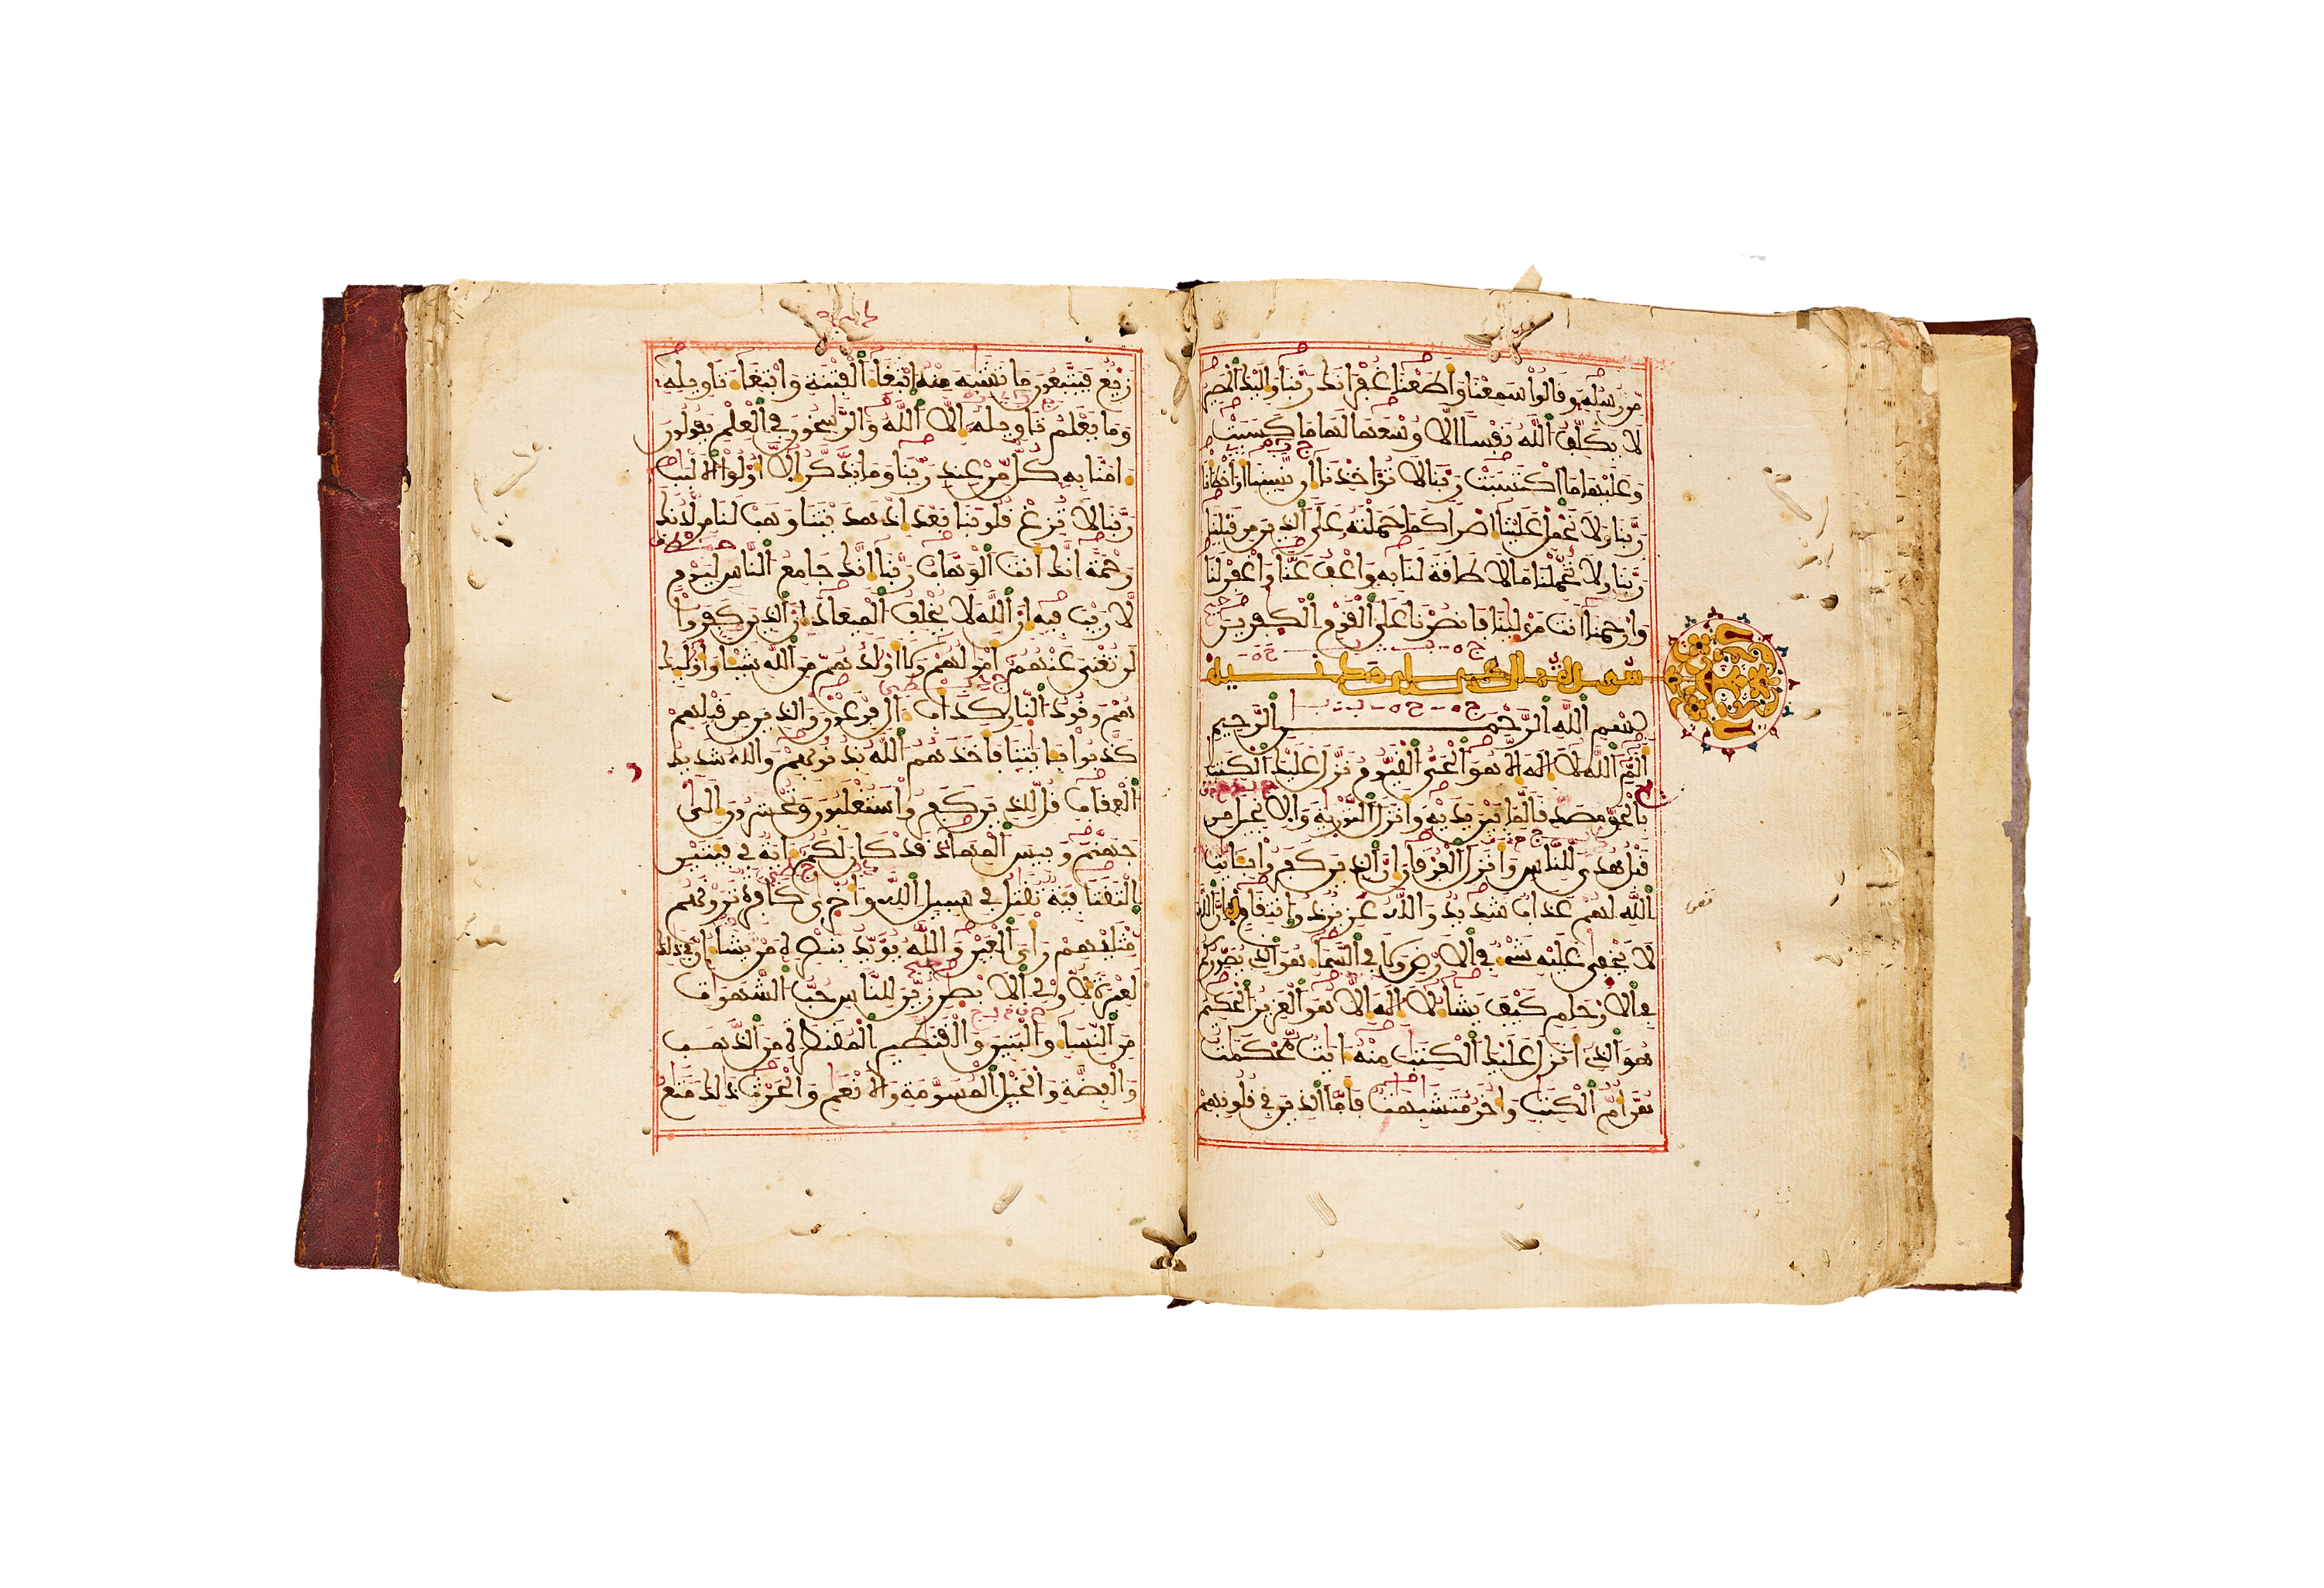 مِّن رُّسُلِهِۦ وَقَالُواْ سَمِعْنَا وَأَطَعْنَا غُفْرَانَكَ رَبَّنَا وَإِلَيْكَ ٱلْمَصِيرُ
لَا يُكَلِّفُ ٱللَّهُ نَفْساً اِلَّا وُسْعَهَا لَهَا مَا كَسَبَتْ
وَعَلَيْهَا مَا ٱكْتَسَبَتْ رَبَّنَا لَا تُؤَاخِذْنَا إِن نَّسِينَا أَوَ اخْطَأْنَا
رَبَّنَا وَلَا تَحْمِلْ عَلَيْنَا إِصْراً كَمَا حَمَلْتَهُۥ عَلَى ٱلذِينَ مِن قَبْلِنَا
رَبَّنَا وَلَا تُحَمِّلْنَا مَا لَا طَاقَةَ لَنَا بِهِۦ وَٱعْفُ عَنَّا وَٱغْفِرْ لَنَا
وَٱرْحَمْنَا أَنتَ مَوْلَىٰنَا فَٱنصُرْنَا عَلَى ٱلْقَوْمِ ٱلْكَٰفِرِينَ
سورة ال عمران مدنية
بِسْمِ ٱللَّهِ ٱلرَّحْمَٰنِ ٱلرَّحِيمِ
أَلَٓمِّٓ ٱللَّهُ لَا إِلَٰهَ إِلَّا هُوَ ٱلْحَىُّ ٱلْقَيُّومُ نَزَّلَ عَلَيْكَ ٱلْكِتَٰبَ
بِالْحَقِّ مُصَدِّقاً لِّمَا بَيْنَ يَدَيْهِ وَأَنزَلَ ٱلتَّوْرَىٰةَ وَالِانجِيلَ مِن
قَبْلُ هُدىً لِّلنَّاسِ وَأَنزَلَ ٱلْفُرْقَانَ إِنَّ ٱلذِينَ كَفَرُواْ بِـَٔايَٰتِ
ٱللَّهِ لَهُمْ عَذَابٌ شَدِيدٌ وَاللَّهُ عَزِيزٌ ذُو ٱنتِقَامٍ إِنَّ ٱللَّهَ
لَا يَخْفَىٰ عَلَيْهِ شَىْءٌ فِى ٱلَارْضِ وَلَا فِى ٱلسَّمَاءِ هُوَ ٱلذِى يُصَوِّرُكُمْ
فِى ٱلَارْحَامِ كَيْفَ يَشَاءُ لَا إِلَٰهَ إِلَّا هُوَ ٱلْعَزِيزُ ٱلْحَكِيمُ
هُوَ ٱلذِى أَنزَلَ عَلَيْكَ ٱلْكِتَٰبَ مِنْهُ ءَايَٰتٌ مُّحْكَمَٰتٌ
هُنَّ أُمُّ ٱلْكِتَٰبِ وَأُخَرُ مُتَشَٰبِهَٰتٌ فَأَمَّا ٱلذِينَ فِى قُلُوبِهِمْ
زَيْغٌ فَيَتَّبِعُونَ مَا تَشَٰبَهَ مِنْهُ ٱبْتِغَاءَ ٱلْفِتْنَةِ وَابْتِغَاءَ تَاوِيلِهِۦ
وَمَا يَعْلَمُ تَاوِيلَهُۥ إِلَّا ٱللَّهُ وَالرَّٰسِخُونَ فِى ٱلْعِلْمِ يَقُولُونَ
ءَامَنَّا بِهِۦ كُلٌّ مِّنْ عِندِ رَبِّنَا وَمَا يَذَّكَّرُ إِلَّا أُوْلُواْ ٱلَالْبَٰبِ
رَبَّنَا لَا تُزِغْ قُلُوبَنَا بَعْدَ إِذْ هَدَيْتَنَا وَهَبْ لَنَا مِن لَّدُنكَ
رَحْمَةً إِنَّكَ أَنتَ ٱلْوَهَّابُ رَبَّنَا إِنَّكَ جَامِعُ ٱلنَّاسِ لِيَوْمٍ
لَّا رَيْبَ فِيهِ إِنَّ ٱللَّهَ لَا يُخْلِفُ ٱلْمِيعَادَ إِنَّ ٱلذِينَ كَفَرُواْ
لَن تُغْنِىَ عَنْهُمُۥ أَمْوَٰلُهُمْ وَلَا أَوْلَٰدُهُم مِّنَ ٱللَّهِ شَيْـاً وَأُوْلَٰئِكَ
هُمْ وَقُودُ ٱلنَّارِ كَدَأْبِ ءَالِ فِرْعَوْنَ وَالذِينَ مِن قَبْلِهِمْ
كَذَّبُواْ بِـَٔايَٰتِنَا فَأَخَذَهُمُ ٱللَّهُ بِذُنُوبِهِمْ وَاللَّهُ شَدِيدُ
ٱلْعِقَابِ قُل لِّلذِينَ كَفَرُواْ سَتُغْلَبُونَ وَتُحْشَرُونَ إِلَىٰ
جَهَنَّمَ وَبِيسَ ٱلْمِهَادُ قَدْ كَانَ لَكُمُۥ ءَايَةٌ فِى فِئَتَيْنِ
ٱلْتَقَتَا فِئَةٌ تُقَٰتِلُ فِى سَبِيلِ ٱللَّهِ وَأُخْرَىٰ كَافِرَةٌ تَرَوْنَهُم
مِّثْلَيْهِمْ رَأْىَ ٱلْعَيْنِ وَاللَّهُ يُؤَيِّدُ بِنَصْرِهِۦ مَنْ يَّشَاءُ انَّ فِى ذَٰلِكَ
لَعِبْرَةً لِّأُوْلِى ٱلَابْصَٰرِ زُيِّنَ لِلنَّاسِ حُبُّ ٱلشَّهَوَٰتِ
مِنَ ٱلنِّسَاءِ وَالْبَنِينَ وَالْقَنَٰطِيرِ ٱلْمُقَنطَرَةِ مِنَ ٱلذَّهَبِ
وَالْفِضَّةِ وَالْخَيْلِ ٱلْمُسَوَّمَةِ وَالَانْعَٰمِ وَالْحَرْثِ ذَٰلِكَ مَتَٰعُ